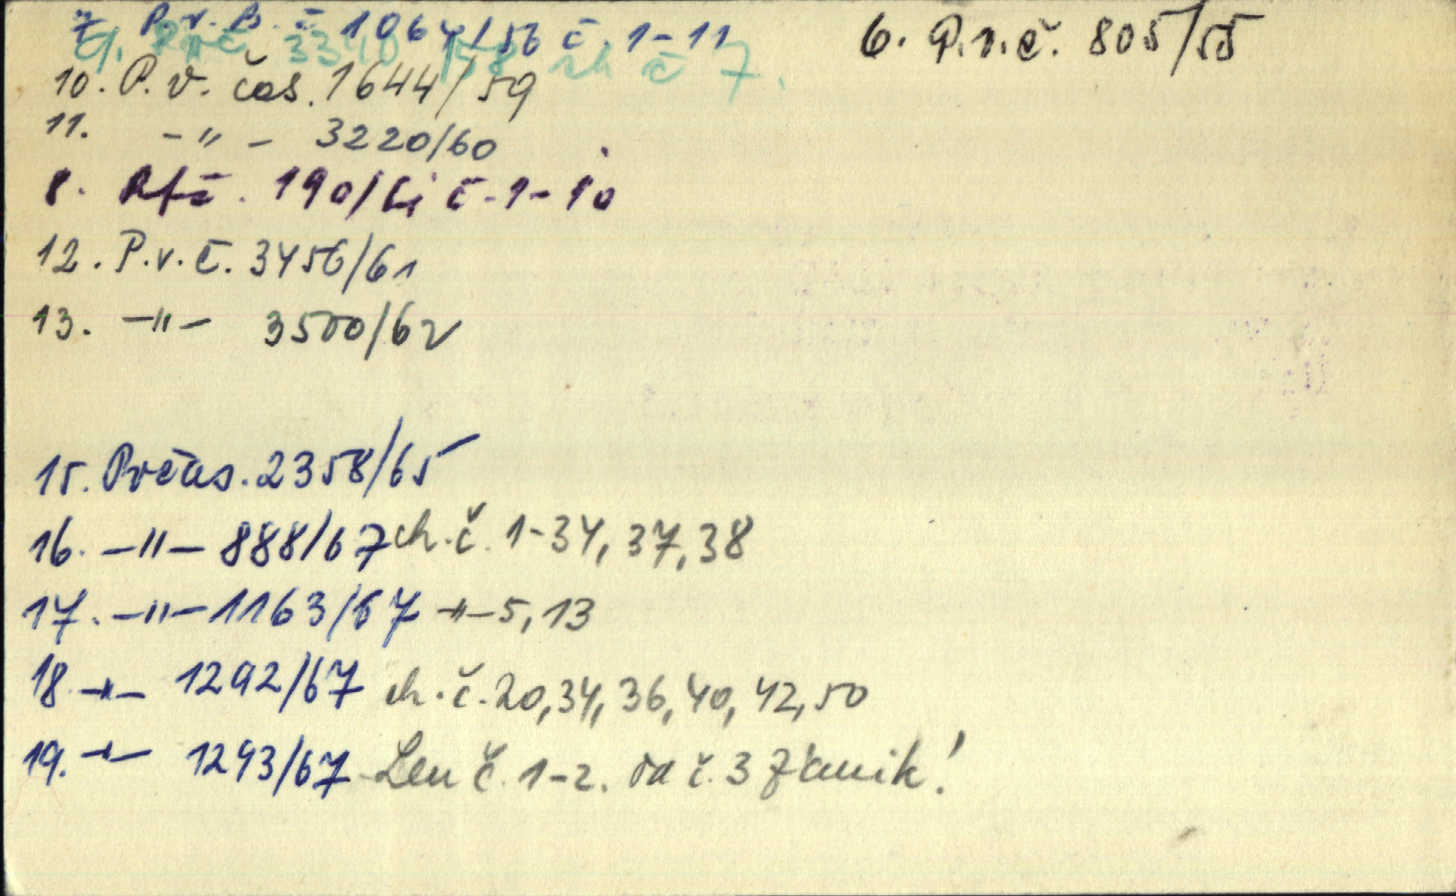 7. P.v. B. č 1064/56 č. 1-11
6. P.v.č. 805/55
9. Pvč. 3340/58 ch č 7.
10. P.v. čas. 1644/59
11. -"- 3220/60
8. č. 1-10
12. P.v.č. 3456/61
13. -"- 3500/62
15. Pvčas. 2358/65
16. -"- 888/67 ch.č. 1-34, 37, 38
17. -"- 1163/67 -"- 5, 13
18 -"- 1292/67 ch.č. 20, 34, 36, 40, 42, 50
19. -"- 1293/67 Len č. 1-2. od č. 3 zánik!